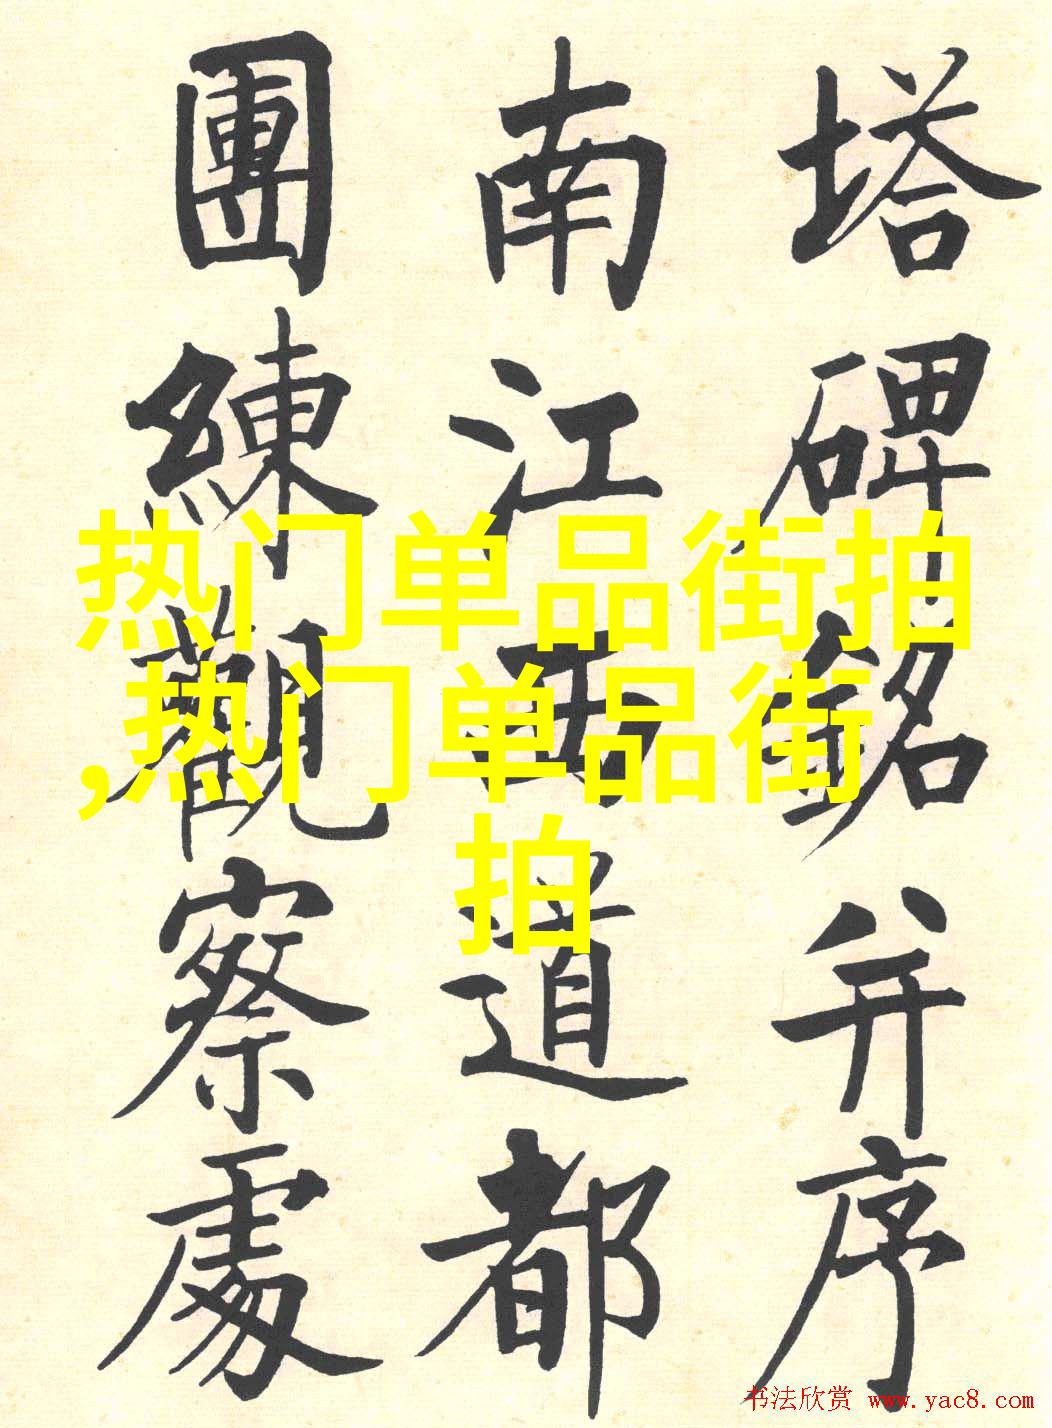 塔碑銘并序
南江西道都
團練觀察處
热门单品街拍
,热门单品街
拍
书法欣赏 www.yac8.com